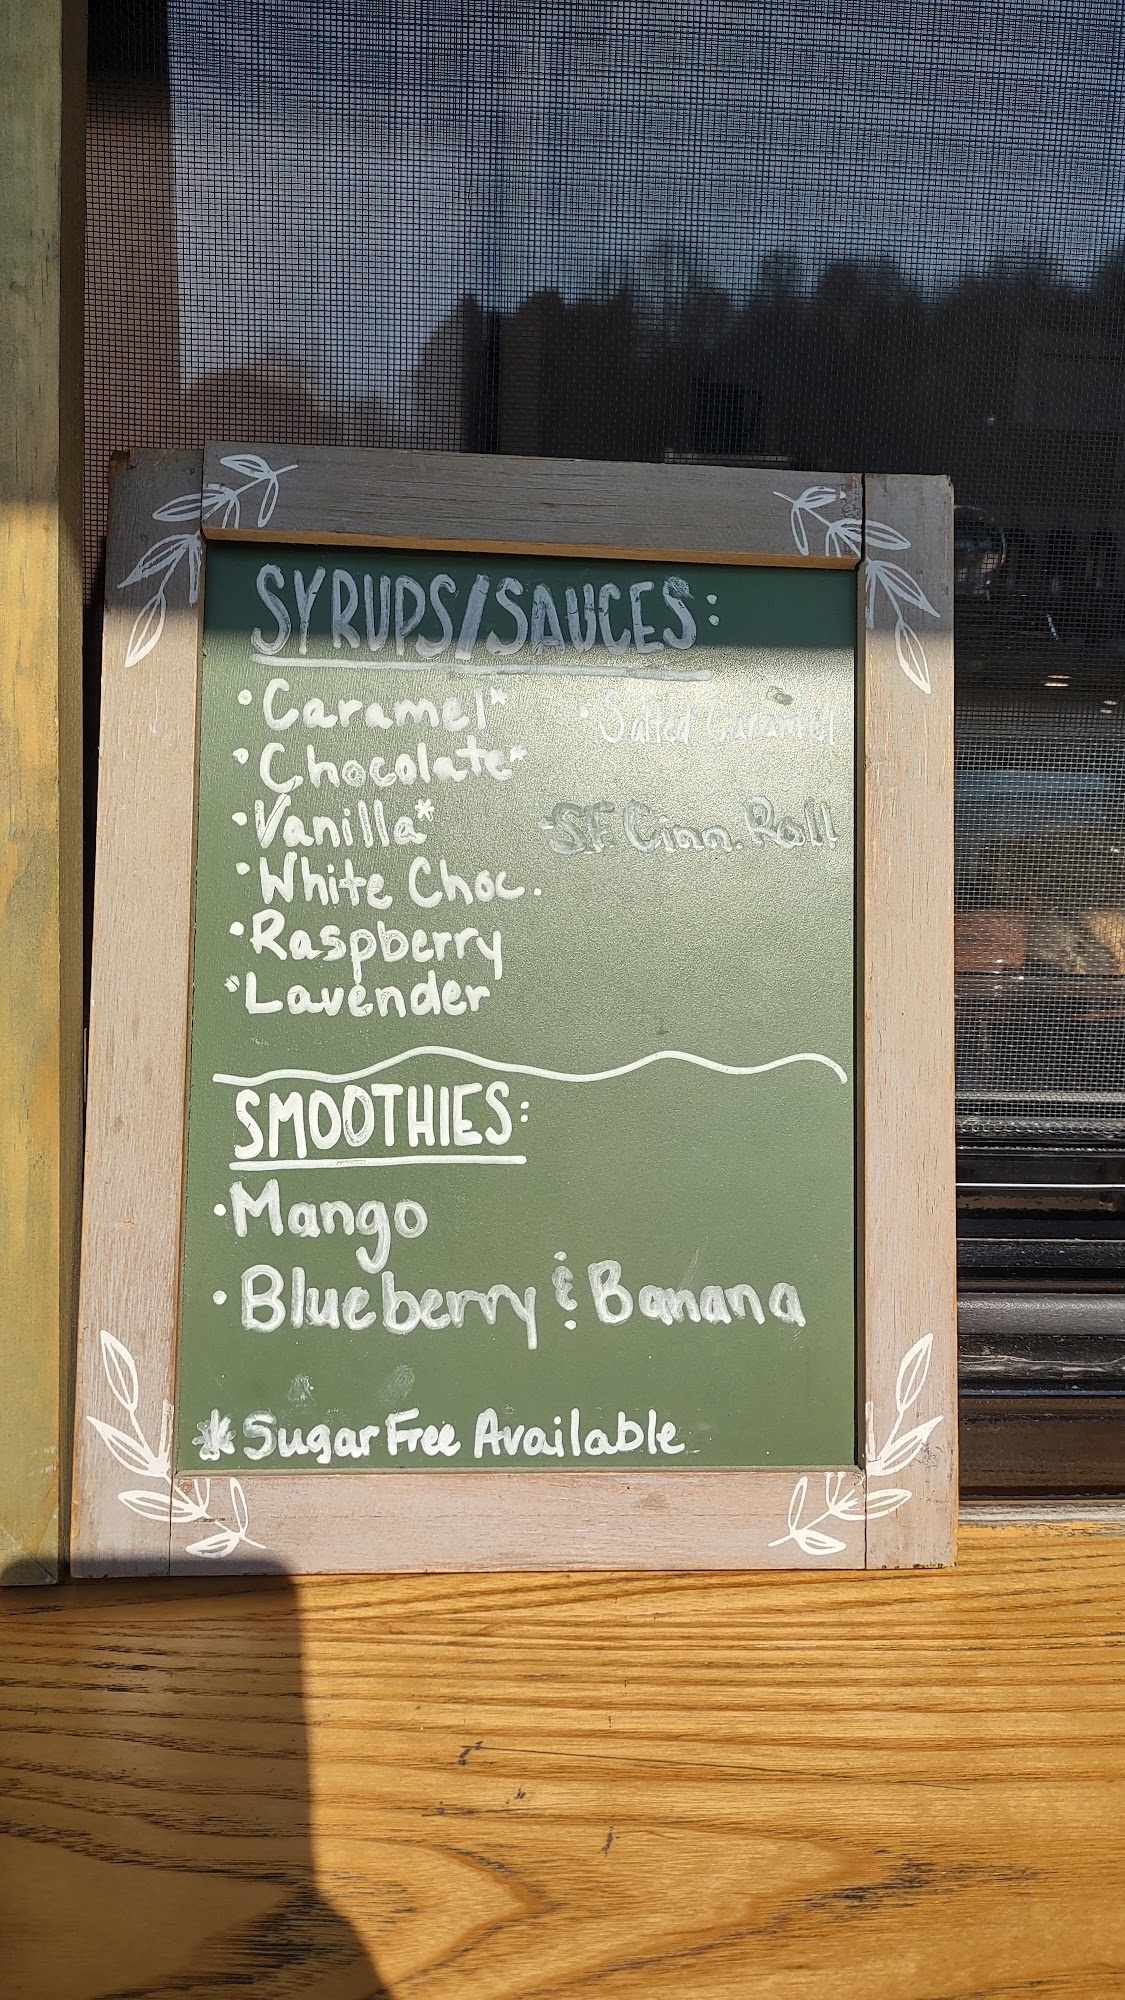 SYRUPS/SAUCES:
• Caramel*
• Chocolate*
• Vanilla*
• White Choc.
• Raspberry
• Lavender
• Salted Caramel
- SF Cinn. Roll
SMOOTHIES:
• Mango
• Blueberry & Banana
* Sugar Free Available